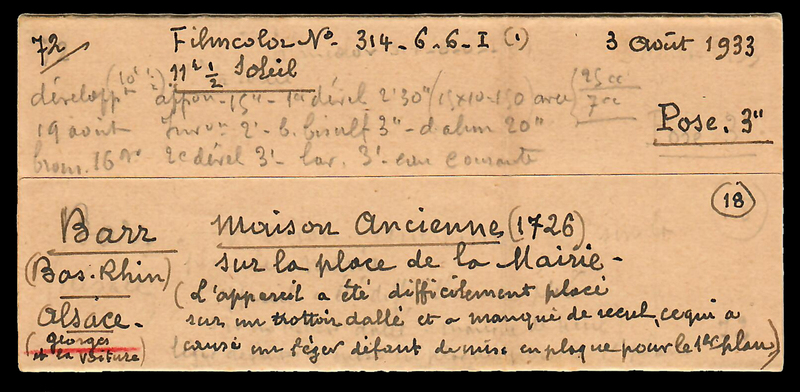 72 Filmcolor No. 314-6-6-I (1) 3 août 1933
11h 1/2 Soleil
développt (10h 1/2) appon - 15" - 1er dével 2'30" (15x10=150) avec 25cc / 7cc
19 août 2' - b. bisulf 3" - d'alun 20" Pose. 3"
brom. 16 2e dével 3' - lav. 3' - eau courante
18
Barr Maison Ancienne (1726)
(Bas-Rhin) sur la place de la Mairie -
Alsace - (L'appareil a été difficilement placé
sur un trottoir dallé et a manqué de recul, ce qui a
(georges et la voiture) causé un léger défaut de mise en plaque pour le 1er plan)